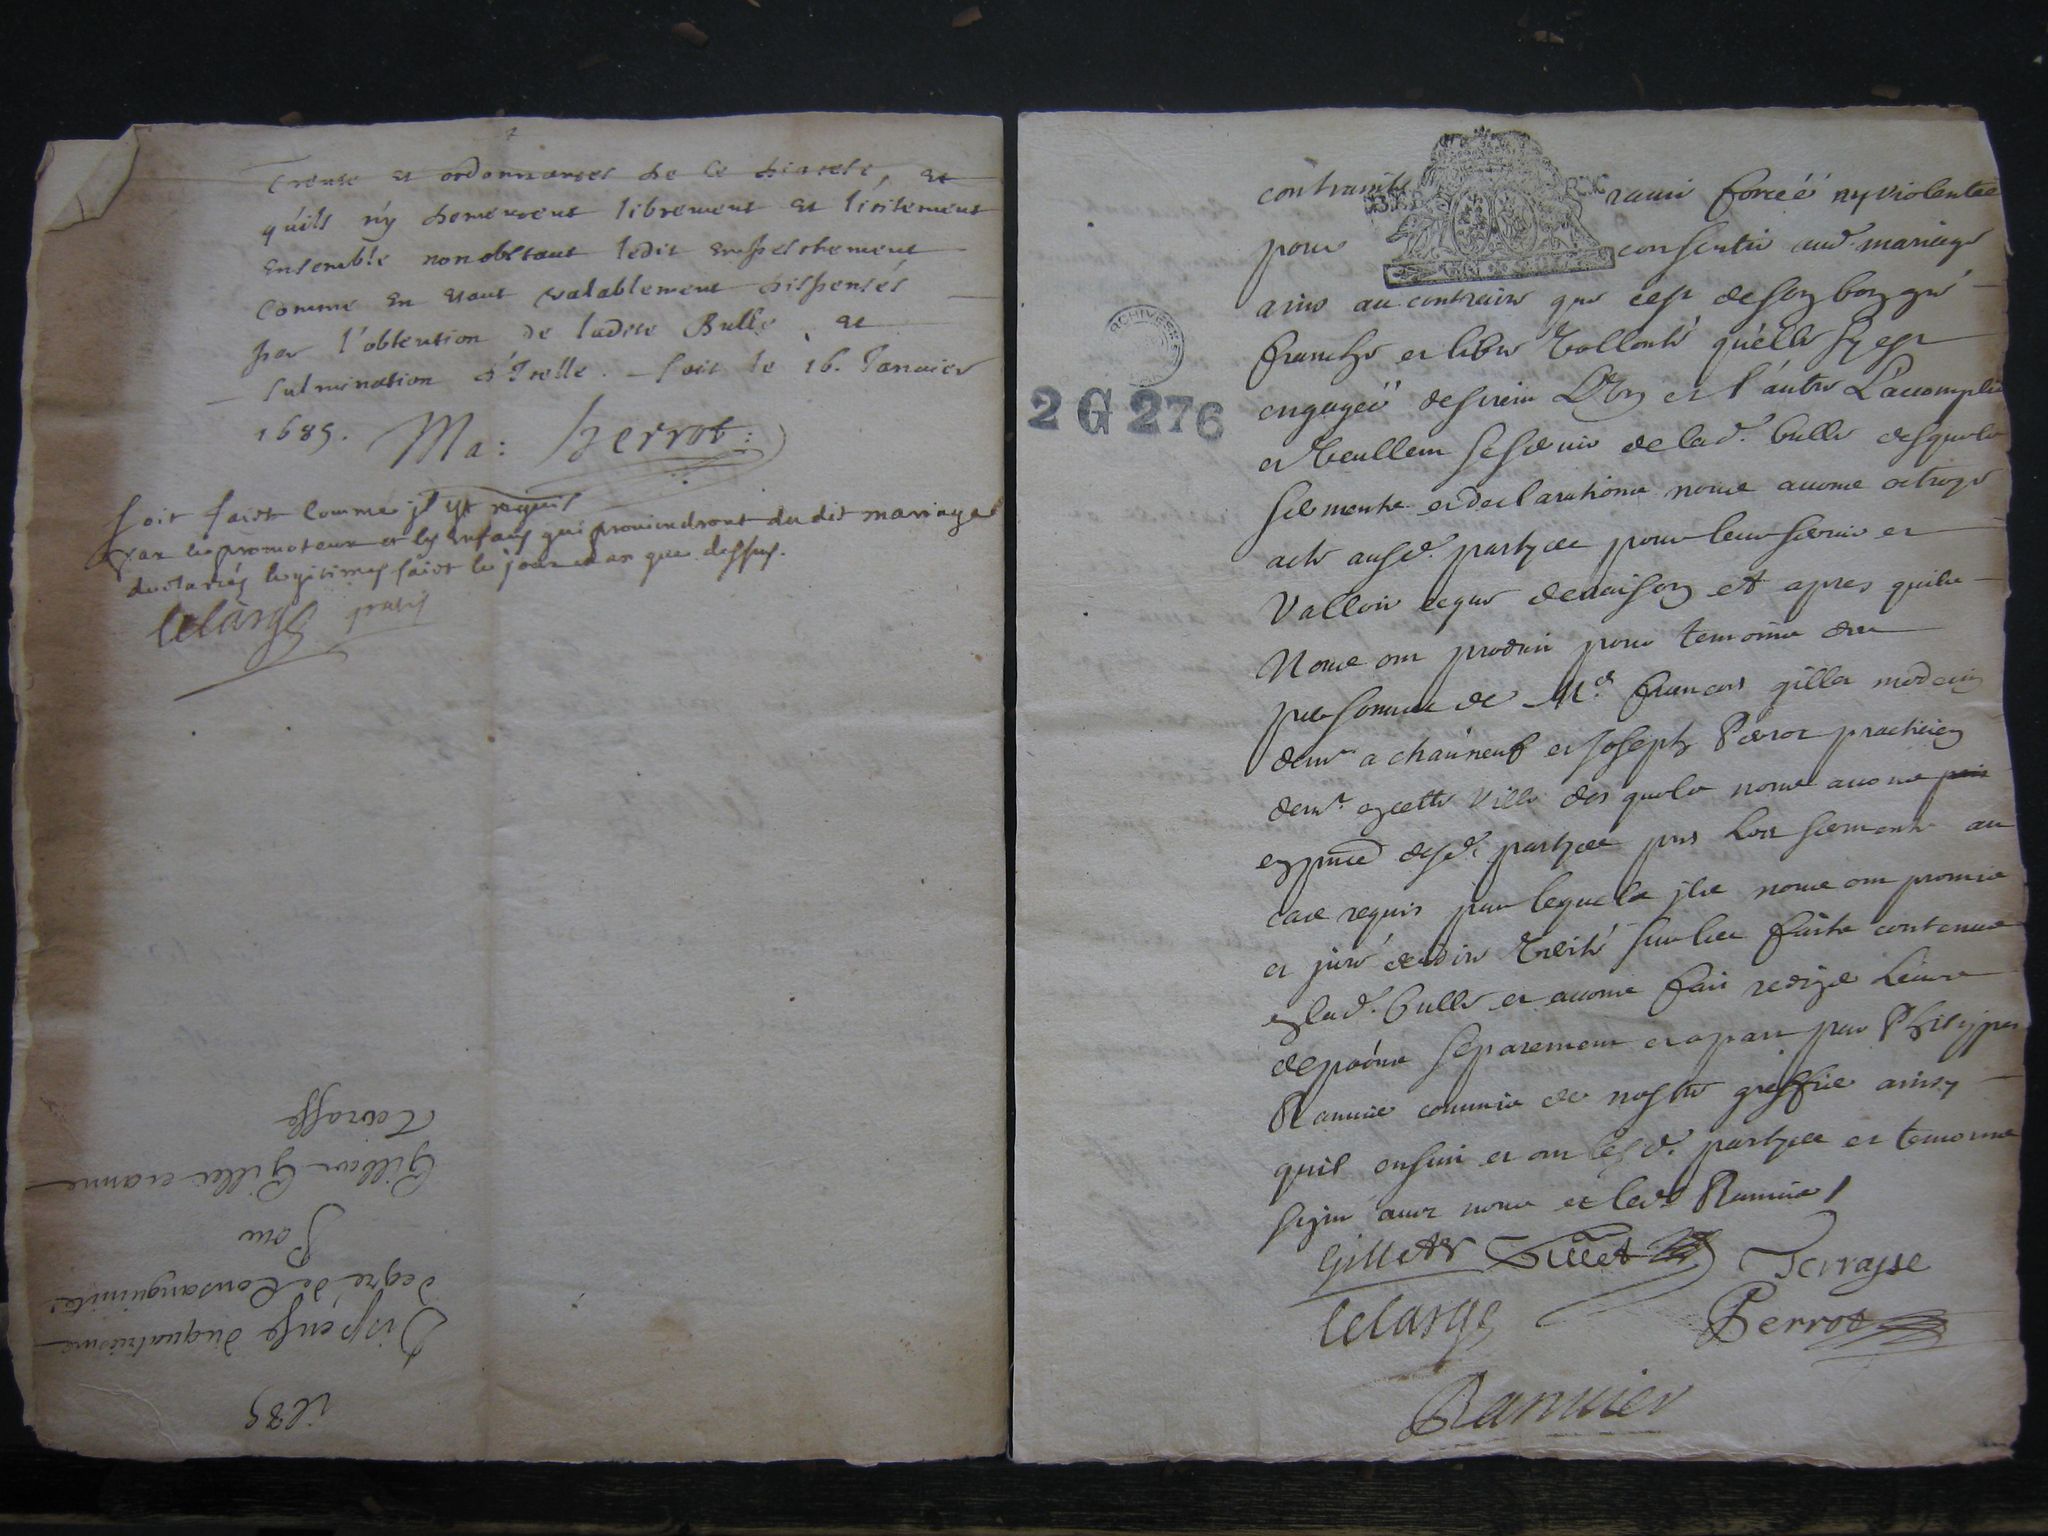 et ordonnances de ce diocese, et
qu'ils n'y demeurent librement et licitement
Ensemble nonobstant ledit empeschement
Comme en étant valablement dispensés
par l'obtention de ladite Bulle, et
fulmination d'Icelle. fait le 16. Janvier
1685. Ma: Perrot:
soit faict comme jl est requis
par le promoteur et les enfans qui proviendront du dit mariage
declarés legitimes faict le jour et an que dessus.
Lelarge
1685
Dispense du quatriesme
degré de Consanguinité
Pour
Gilbert Gillet et anne
Terrasse
2 G 276
contrainte ravie forceé ny violentee
pour consentir aud. mariage
ains au contraire que c'est de son bon gré
franche et libre vollonté qu'elle sy est
engagéé desirein l'un et l'autre l'accomplir
et veullem se servir de lad. bulle desquels
serments et declarations nous avons octroyé
acte ausd. partyes pour leur servir et
Valloir ce que de raison et apres quils
Nous ont produit pour temoins des
personnes de Me. francois gillet medecin
demt. a chauneuf et Joseph Perrot practicien
demt. en cette ville des quels nous avons
en pnce desd. partyes pris les serments au
cas requis par lequels jls nous ont promis
et juré de dire verité sur les faits contenus
en lad. bulle et avons fait rediger leurs
depoõns separement et a part par Philippes
Ramier commis de nostre greffier ainsy
quil ensuit et ont lesd. partyes et temoins
signe avec nous et led. Ramier
Gillet Gillet Terrasse
Lelarge Perrot
Ramier